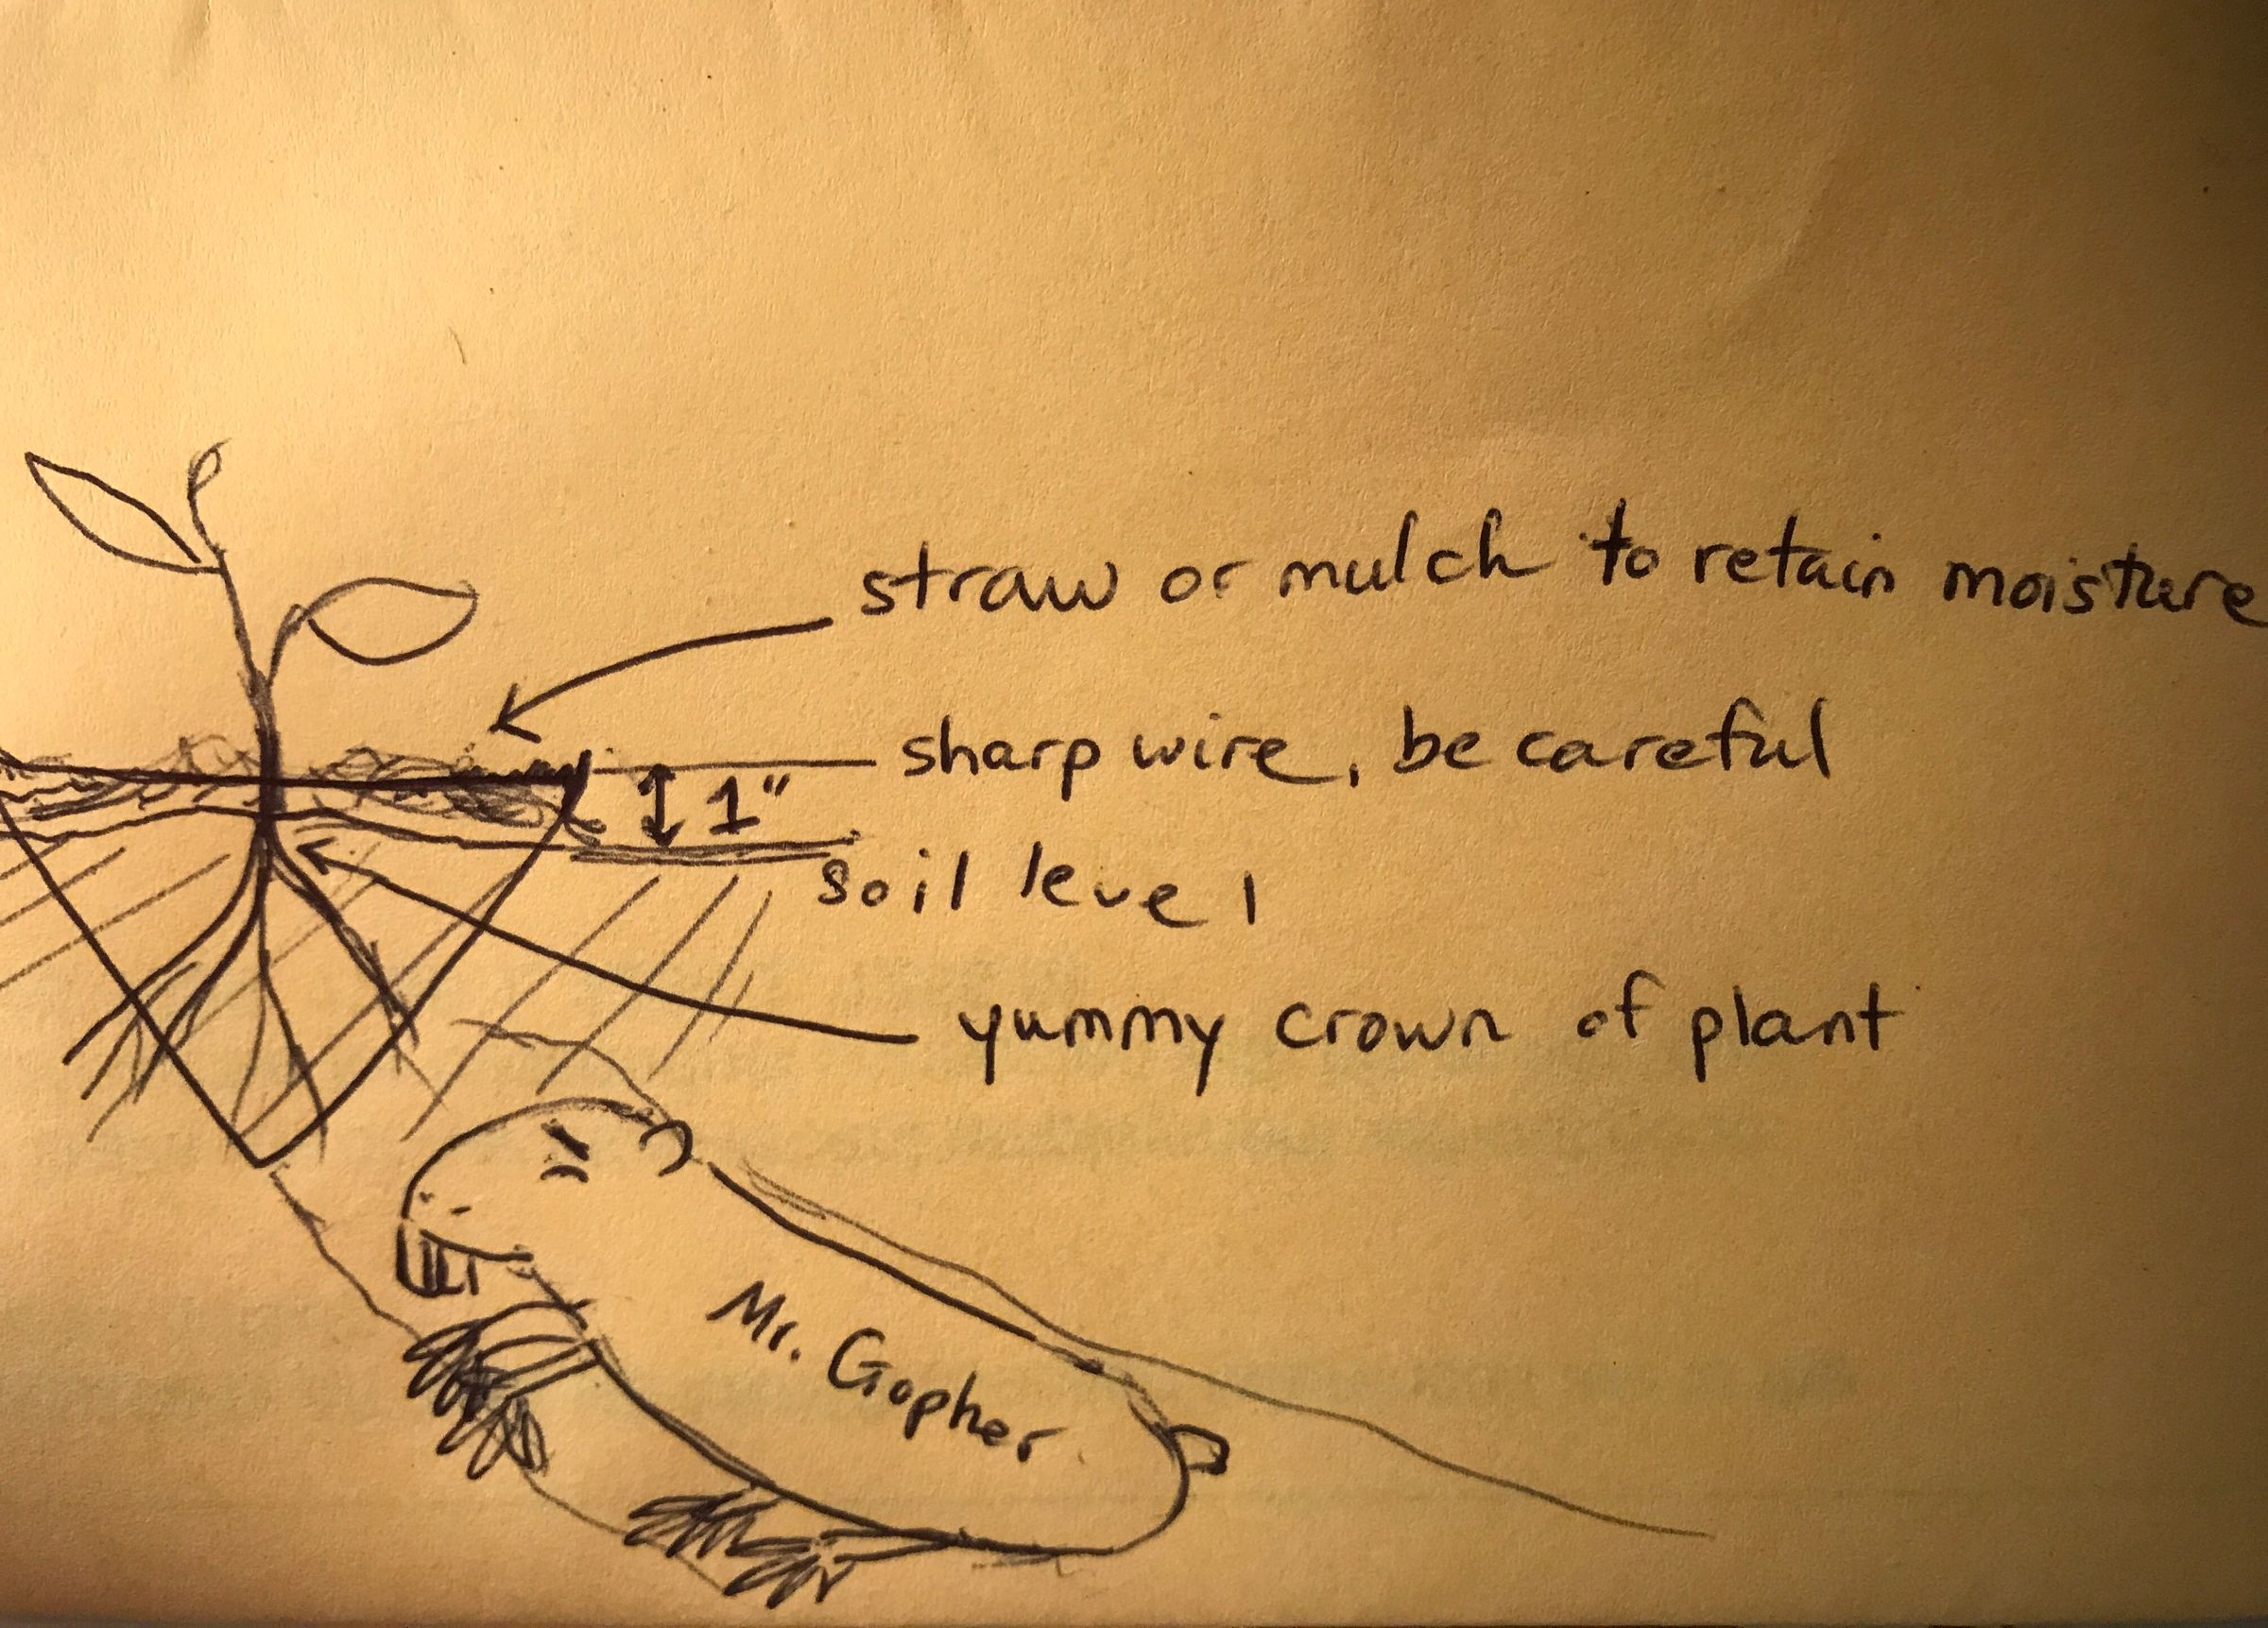 straw or mulch to retain moisture
sharp wire, be careful
1"
soil level
yummy crown of plant
Mr. Gopher